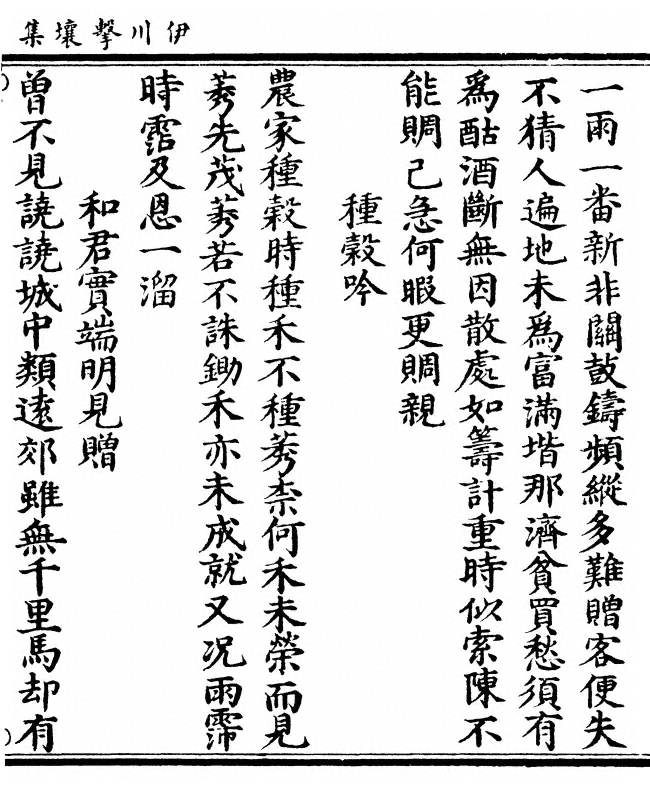 伊川擊壤集
一雨一番新非關鼓鑄頻縱多難贈客便失
不猜人遍地未爲富滿堦那濟貧買愁須有
爲酤酒斷無因散處如籌計重時似索陳不
能賙己急何暇更賙親
種穀吟
農家種穀時種禾不種莠柰何禾未榮而見
莠先茂莠若不誅鋤禾亦未成就又况雨霈
時霑及恩一溜
和君實端明見贈
曾不見譊譊城中類遠郊雖無千里馬却有